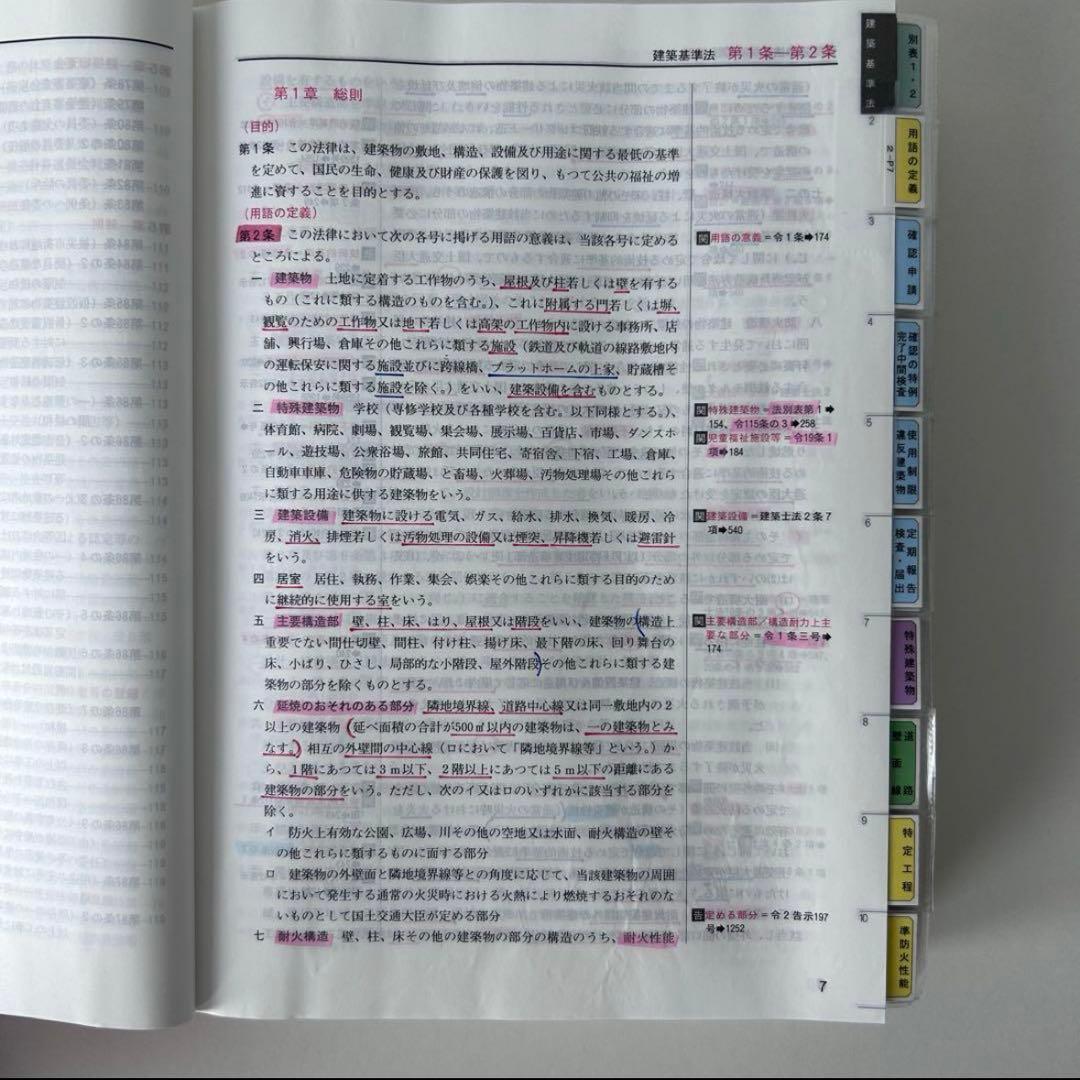 建築基準法 第1条―第2条
第1章 総則
(目的)
第1条 この法律は、建築物の敷地、構造、設備及び用途に関する最低の基準
を定めて、国民の生命、健康及び財産の保護を図り、もつて公共の福祉の増
進に資することを目的とする。
(用語の定義)
第2条 この法律において次の各号に掲げる用語の意義は、当該各号に定める
ところによる。
一 建築物 土地に定着する工作物のうち、屋根及び柱若しくは壁を有する
もの(これに類する構造のものを含む。)、これに附属する門若しくは塀、
観覧のための工作物又は地下若しくは高架の工作物内に設ける事務所、店
舗、興行場、倉庫その他これらに類する施設(鉄道及び軌道の線路敷地内
の運転保安に関する施設並びに跨線橋、プラットホームの上家、貯蔵槽そ
の他これらに類する施設を除く。)をいい、建築設備を含むものとする。
二 特殊建築物 学校(専修学校及び各種学校を含む。以下同様とする。)、
体育館、病院、劇場、観覧場、集会場、展示場、百貨店、市場、ダンスホ
ール、遊技場、公衆浴場、旅館、共同住宅、寄宿舎、下宿、工場、倉庫、
自動車車庫、危険物の貯蔵場、と畜場、火葬場、汚物処理場その他これら
に類する用途に供する建築物をいう。
三 建築設備 建築物に設ける電気、ガス、給水、排水、換気、暖房、冷
房、消火、排煙若しくは汚物処理の設備又は煙突、昇降機若しくは避雷針
をいう。
四 居室 居住、執務、作業、集会、娯楽その他これらに類する目的のため
に継続的に使用する室をいう。
五 主要構造部 壁、柱、床、はり、屋根又は階段をいい、建築物の構造上
重要でない間仕切壁、間柱、付け柱、揚げ床、最下階の床、回り舞台の
床、小ばり、ひさし、局部的な小階段、屋外階段その他これらに類する建
築物の部分を除くものとする。
六 延焼のおそれのある部分 隣地境界線、道路中心線又は同一敷地内の2
以上の建築物(延べ面積の合計が500㎡以内の建築物は、一の建築物とみ
なす。)相互の外壁間の中心線(ロにおいて「隣地境界線等」という。)か
ら、1階にあつては3m以下、2階以上にあつては5m以下の距離にある
建築物の部分をいう。ただし、次のイ又はロのいずれかに該当する部分を
除く。
イ 防火上有効な公園、広場、川その他の空地又は水面、耐火構造の壁そ
の他これらに類するものに面する部分
ロ 建築物の外壁面と隣地境界線等との角度に応じて、当該建築物の周囲
において発生する通常の火災時における火熱により燃焼するおそれのな
いものとして国土交通大臣が定める部分
七 耐火構造 壁、柱、床その他の建築物の部分の構造のうち、耐火性能
関用語の意義=令1条➡174
関特殊建築物=法別表第1➡
154、令115条の3➡258
関児童福祉施設等=令19条1
項➡184
関建築設備=建築士法2条7
項➡540
関主要構造部/構造耐力上主
要な部分=令1条三号➡
174
告定める部分=令2告示197
号➡1252
7
建築基準法
別表1・2
2
用語の定義
2-P7
3
確認申請
4
確認の特例
完了中間検査
5
使用制限
違反建築物
6
定期報告
検査・届出
7
特殊建築物
8
道路
壁面線
9
特定工程
10
準防火性能